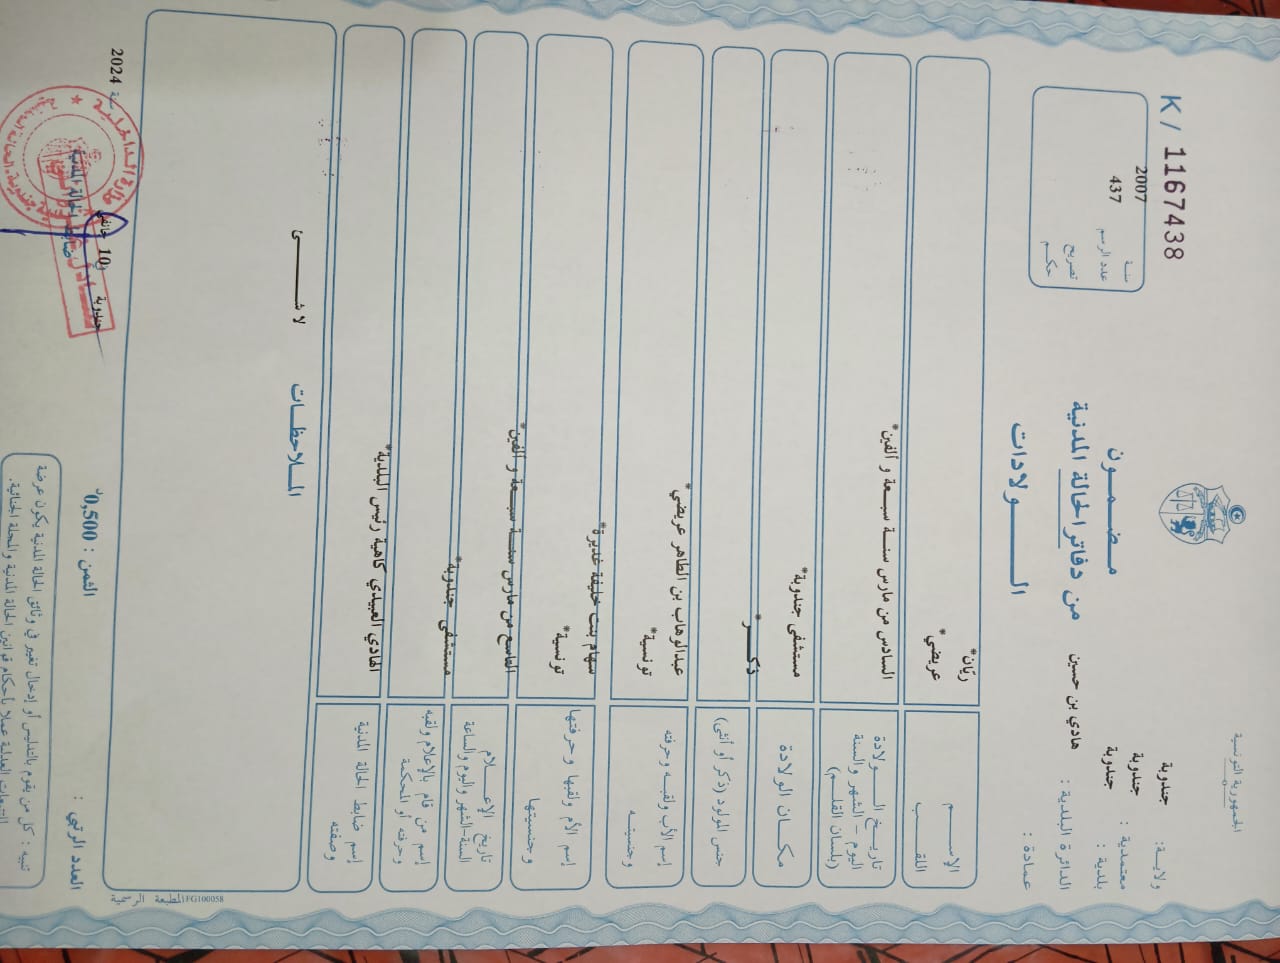 الجمهورية التونسية
ولاية: جندوبة
معتمدية : جندوبة
بلدية : جندوبة
الدائرة البلدية : هادي بن حسين
عمادة :
مضمون
من دفاتر الحالة المدنية
الولادات
K/ 1167438
سنة 2007
عدد الرسم 437
تصريح
حكم
الإسم ريّان*
اللقب عريضي*
تاريخ الولادة
اليوم – الشهر والسنة
(بلسان القلم)
السادس من مارس سنة سبعة و ألفين*
مكان الولادة مستشفى جندوبة*
جنس المولود (ذكر أو أنثى) ذكر*
إسم الأب ولقبه وحرفته عبدالوهاب بن الطاهر عريضي*
وجنسيته تونسية*
إسم الأم ولقبها وحرفتها سهام بنت خليفة غديرة*
وجنسيتها تونسية*
تاريخ الإعلام
السنة-الشهر واليوم والساعة
التاسع من مارس سنة سبعة و ألفين*
إسم من قام بالإعلام ولقبه
وحرفته أو المحكمة
مستشفى جندوبة*
إسم ضابط الحالة المدنية
وصفته
الهادي العبيدي كاهية رئيس البلدية*
الملاحظات
لا شئ
المطبعة الرسمية FG100058
جندوبة 10 جانفي سنة 2024
ضابط الحالة المدنية
العدد الرتبي :
الثمن : 0,500د
تنبيه : كل من يقوم بالتدليس أو إدخال تغيير في وثائق الحالة المدنية يكون عرضة
للتتبعات العدلية عملا بأحكام قوانين الحالة المدنية والمجلة الجنائية.